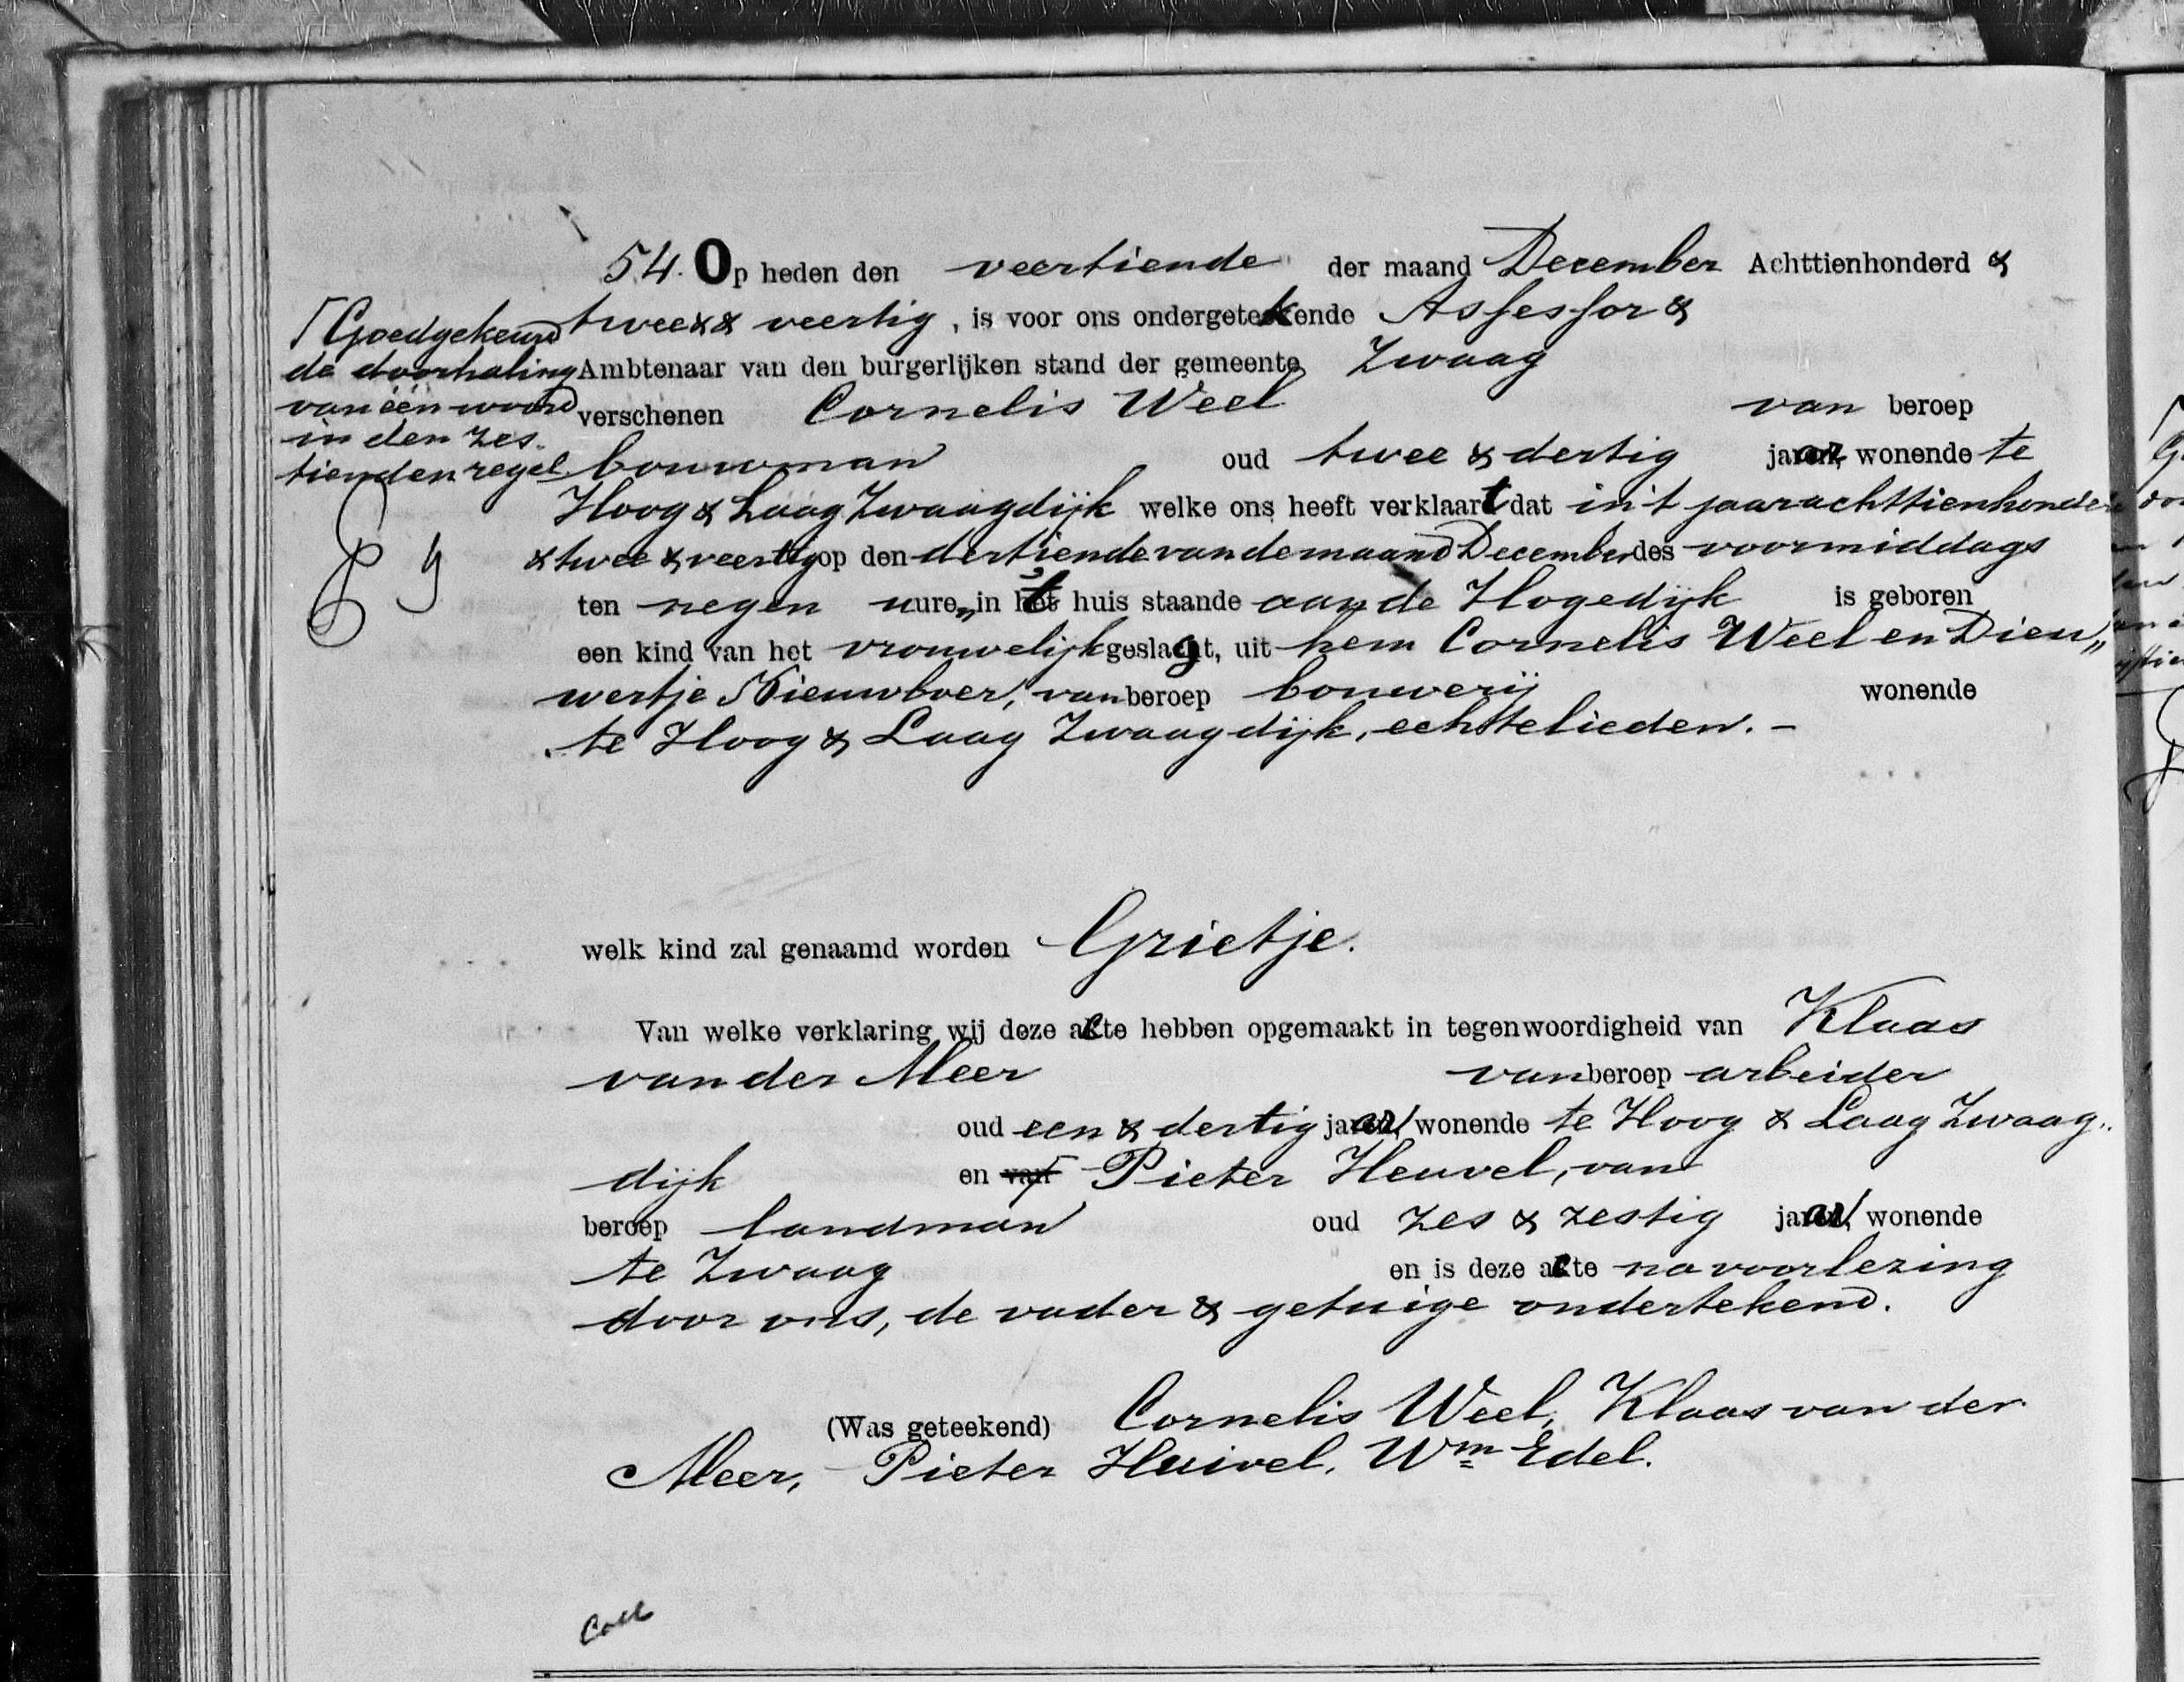 54. Op heden den veertiende der maand December Achttienhonderd &
twee & veertig, is voor ons ondergetekende Assessor &
Ambtenaar van den burgerlijken stand der gemeente Zwaag
verschenen Cornelis Weel van beroep
bouwman oud twee & dertig jaar, wonende te
Hoog & Laag Zwaagdijk welke ons heeft verklaart dat in 't jaar achttienhonderd
& twee & veertig op den dertiende van de maand December des voormiddags
ten negen uure, in 't huis staande aan de Hogedijk is geboren
een kind van het vrouwelijk geslagt, uit hem Cornelis Weel en Dieu„
wertje Nieuwboer, van beroep bouwerij wonende
te Hoog & Laag Zwaagdijk, echtelieden. –
Goedgekeurd
de doorhaling
van één woord
in den zes-
tienden regel
welk kind zal genaamd worden Grietje.
Van welke verklaring wij deze acte hebben opgemaakt in tegenwoordigheid van Klaas
van der Meer van beroep arbeider
oud een & dertig jaar, wonende te Hoog & Laag Zwaag„
dijk en van Pieter Heuvel, van
beroep landman oud zes & zestig jaar, wonende
te Zwaag en is deze acte na voorlezing
door ons, de vader & getuige ondertekend.
(Was geteekend) Cornelis Weel, Klaas van der
Meer, Pieter Huivel, Wm Edel.
Coll